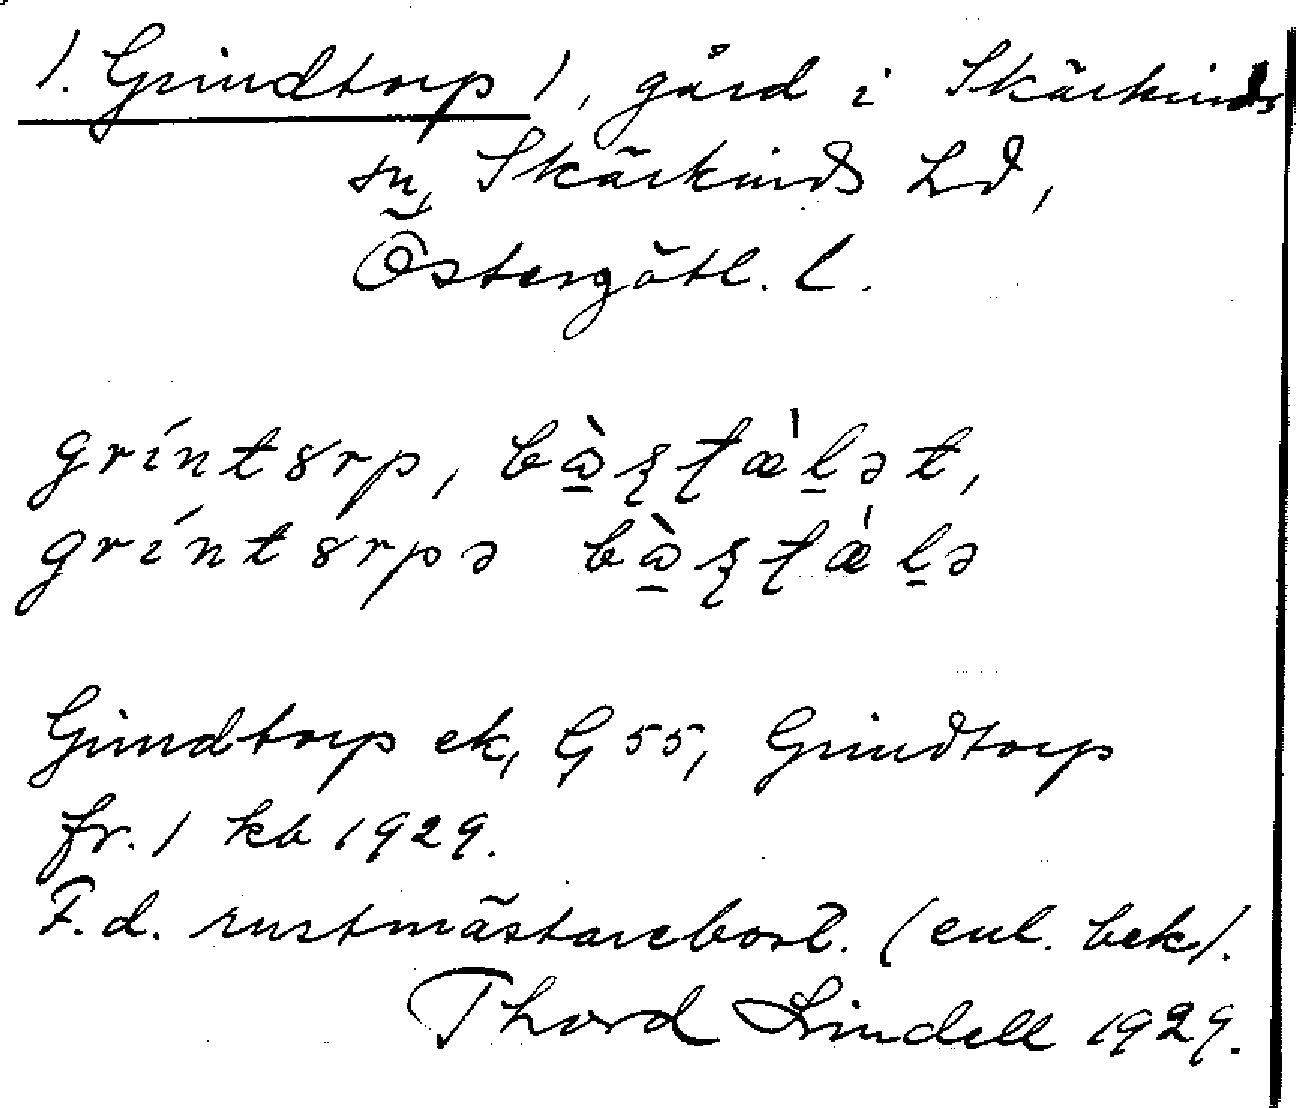 1. Grindtorp 1, gård i Skärkinds
sn, Skärkinds hd,
Östergötl. l.
gríntɤrp, bɷ̀ʂʈæ̀ḷət,
gríntɤrpə bɷ̀ʂʈæ̀ḷə
Grindtorp ek, G 55, Grindtorp
fr. 1 kb 1929.
F.d. rustmästarebost. (enl. bek).
Thord Lindell 1929.